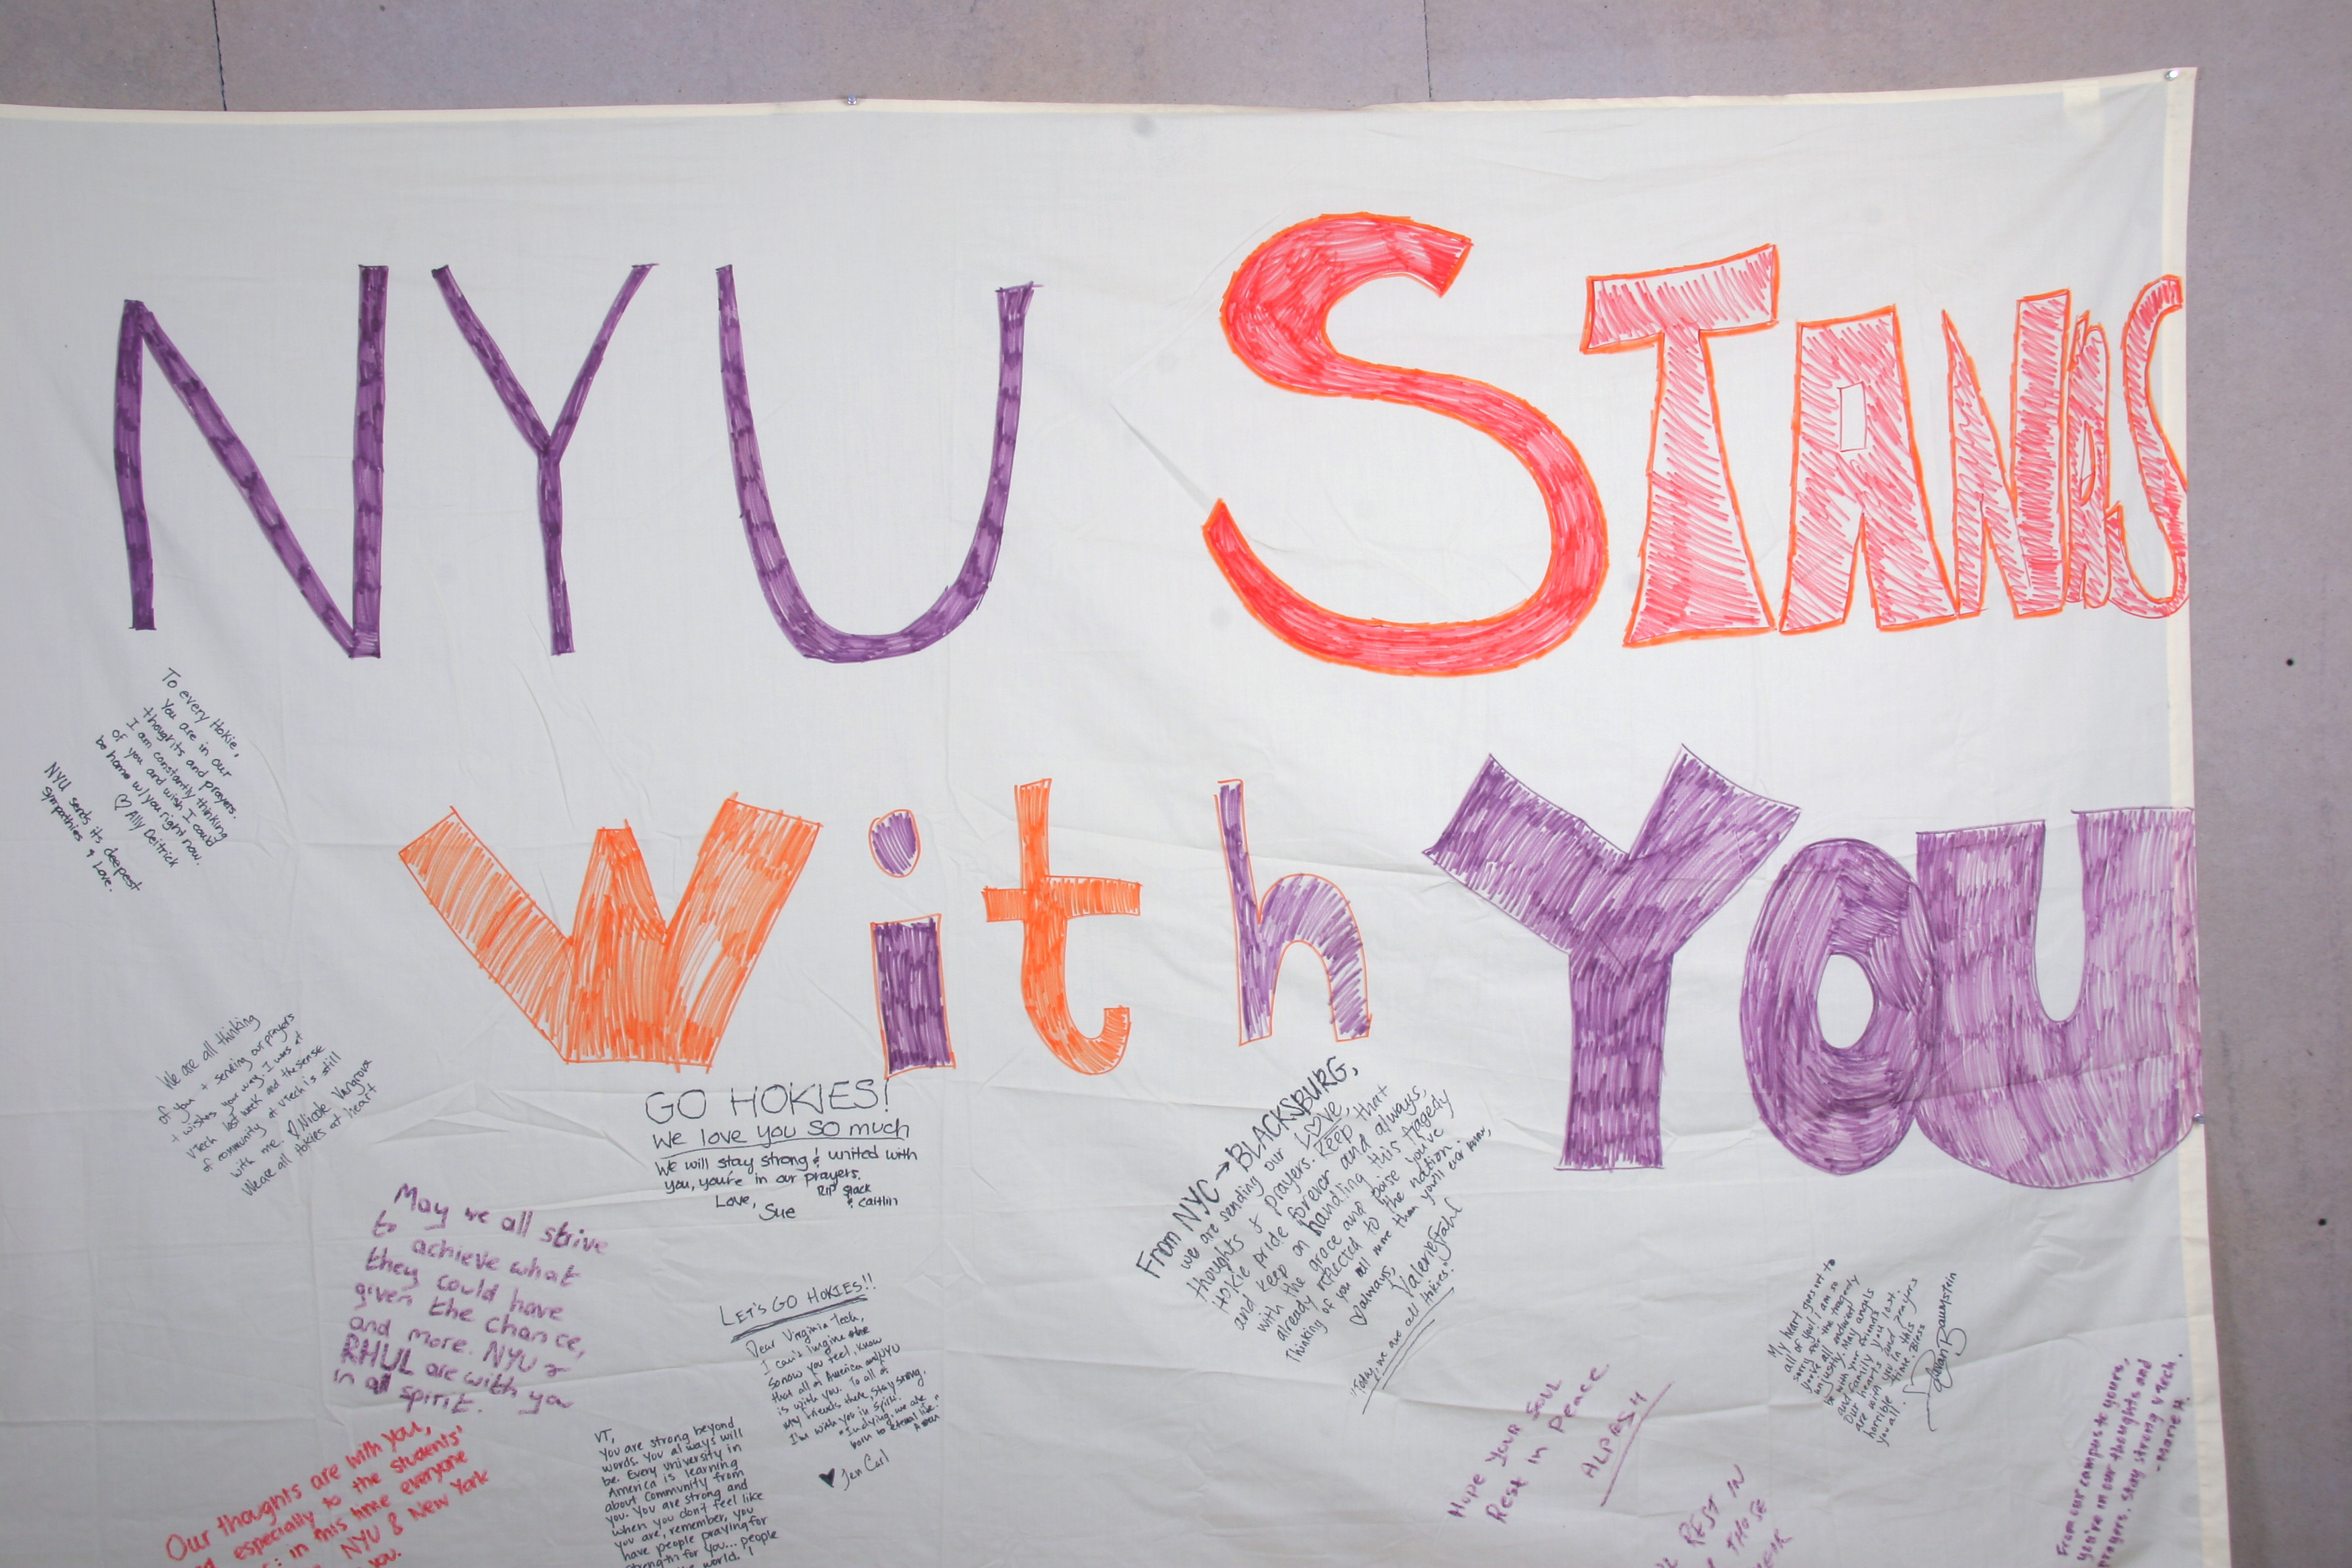 NYU STANDS
With YOU
To every Hokie,
You are in our
thoughts and prayers.
I am constantly thinking
of you and wish I could
be home w/ you right now.
♡ Ally Deitrick
NYU sends its deepest
sympathies & Love.
We are all thinking
of you + sending our prayers
+ wishes your way. I was at
VTech last week and the sense
of community at VTech is still
with me. ♡ Nicole Vangrova
We are all Hokies at heart
GO HOKIES!
We love you SO much
We will stay strong & united with
you, you're in our prayers.
RIP
& Caitlin
Love,
Sue
From NYC → BLACKSBURG,
we are sending our LOVE,
thoughts & prayers. Keep that
Hokie pride forever and always,
and keep on handling this tragedy
with the grace and poise you've
already reflected to the nation.
Thinking of you all more than you'll ever know,
♡ always,
Valerie Stahl
"Today, we are all Hokies."
May we all strive
to achieve what
they could have
given the chance,
and more. NYU &
RHUL are with you
in all spirit.
LET'S GO HOKIES!!
Dear Virginia Tech,
I can't imagine the
sorrow you feel, know
that all of America and NYU
is with you. To all of
my friends there, stay strong.
I'm with you in spirit.
"In dying, we are
born to eternal life."
Amen
♥ Jen Carl
My heart goes out to
all of you! I am so
sorry for the tragedy
you've all endured
unjustly. May angels
be with your friends
and family you lost.
Our hearts and prayers
are with you in this
horrible time. Bless
you all.
Baumstein
Our thoughts are with you,
especially to the students'
in this time everyone
NYU & New York
you.
VT,
You are strong beyond
words. You always will
be. Every University in
America is learning
about community from
you. You are strong and
when you don't feel like
you are, remember, you
have people praying for
strength for you... people
the world. I
Hope Your Soul
Rest in Peace.
ALPESH
REST IN
THOSE
From our campus to yours,
you're in our thoughts and
prayers. Stay strong VTech.
- Marie H.